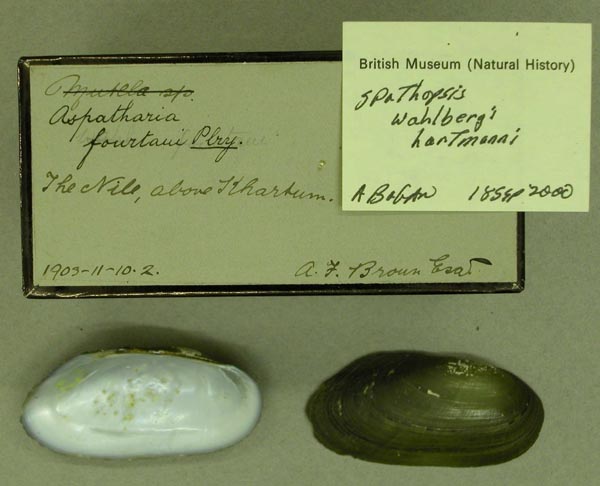 Mutela sp.
Aspatharia
fourtaui Plry.
The Nile, above Khartum.
1903-11-10.2.
A. F. Brown Esqr
British Museum (Natural History)
Spathopsis
wahlbergi
hartmanni
A Bogan 18 Sep 2000